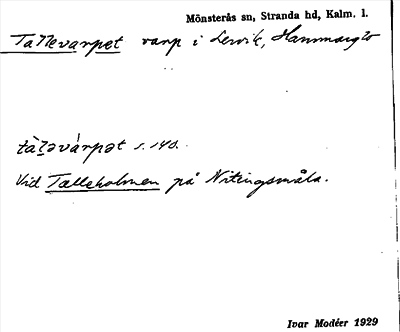 Mönsterås sn, Stranda hd, Kalm. l.
Tallevarpet varp i Lervik,
tàlәvárpәt s. 140.
Vid Talleholmen på Nötingsmåla.
Ivar Modéer 1929